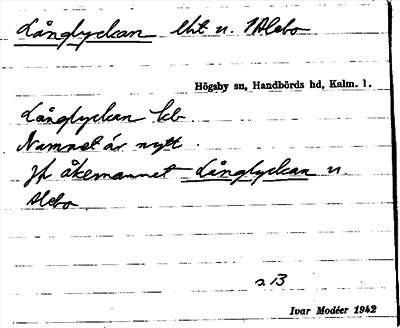 Långlyckan lht u. 1 Alebo
Högsby sn, Handbörds hd, Kalm. l.
Långlyckan kb
Namnet är nytt.
Jfr åkernamnet Långlyckan u.
Alebo.
s. 13
Ivar Modéer 1942